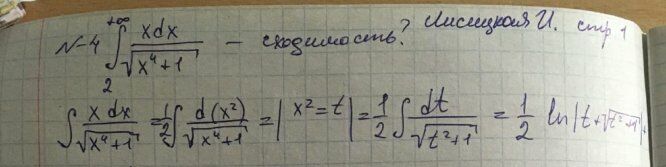 N-4 ∫₂^{+∞} xdx/√(x⁴+1) – сходимость? Лисицкая И. стр 1
∫ x dx/√(x⁴+1) = 1/2 ∫ d(x²)/√(x⁴+1) = | x² = t | = 1/2 ∫ dt/√(t²+1) = 1/2 ln|t+√(t²+1)|+